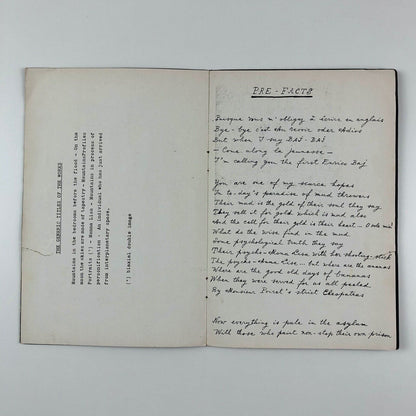 THE GENERIC TITLES OF THE WORKS
Mountains in the bedrooms before the flood - On the
moon the skies are made of tapestry - MountainProfiles
Portraits (*) - Mamma Lion - Mountains in process of
personification - An individual who has just arrived
from interplanetary space.
(*) biaxial double image
PRE-FACTS
Puisque vous m'obligez à écrire en anglais
Bye-bye c'est Au revoir oder Adios
But when I say BAJ-BAJ
- Come along la jeunesse -
I'm calling you the first Enrico Baj
You are of my scarce hopes
In to-day's paradise of mud throwers
Their mud is the gold of their soul they say
They sell it for gold which is mud also
And the call for their gold is their heart
What do the wise find in the mud
Some psychological truth they say
Their psycho-Mona Lisa with her shooting-stick
The psycho-Anna Lise... but where are the ananas
Where are the good old days of bananas
When they were served for us all peeled
By Monsieur Poiret's strict Cleopatras
Now everything is pale in the asylum
With those who paint non-stop their own prison